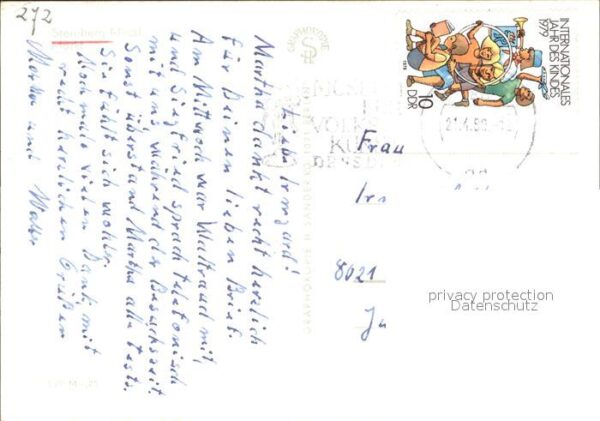 272
Sternberg Meckl
Liebe Irmgard!
Martha dankt recht herzlich
für Deinen lieben Brief.
Am Mittwoch war Waltraud mit
und Siegfried sprach telefonisch
mit uns während der Besuchszeit.
Sonst überstand Martha alle Tests.
Sie fühlt sich wohler.
Nochmals vielen Dank, mit
recht herzlichen Grüßen
Martha und
INTERNATIONALES
JAHR DES KINDES
1979
10
DDR
MUSEUM
VOLKS
KUNST
DRESDEN
Frau
8021
privacy protection
Datenschutz